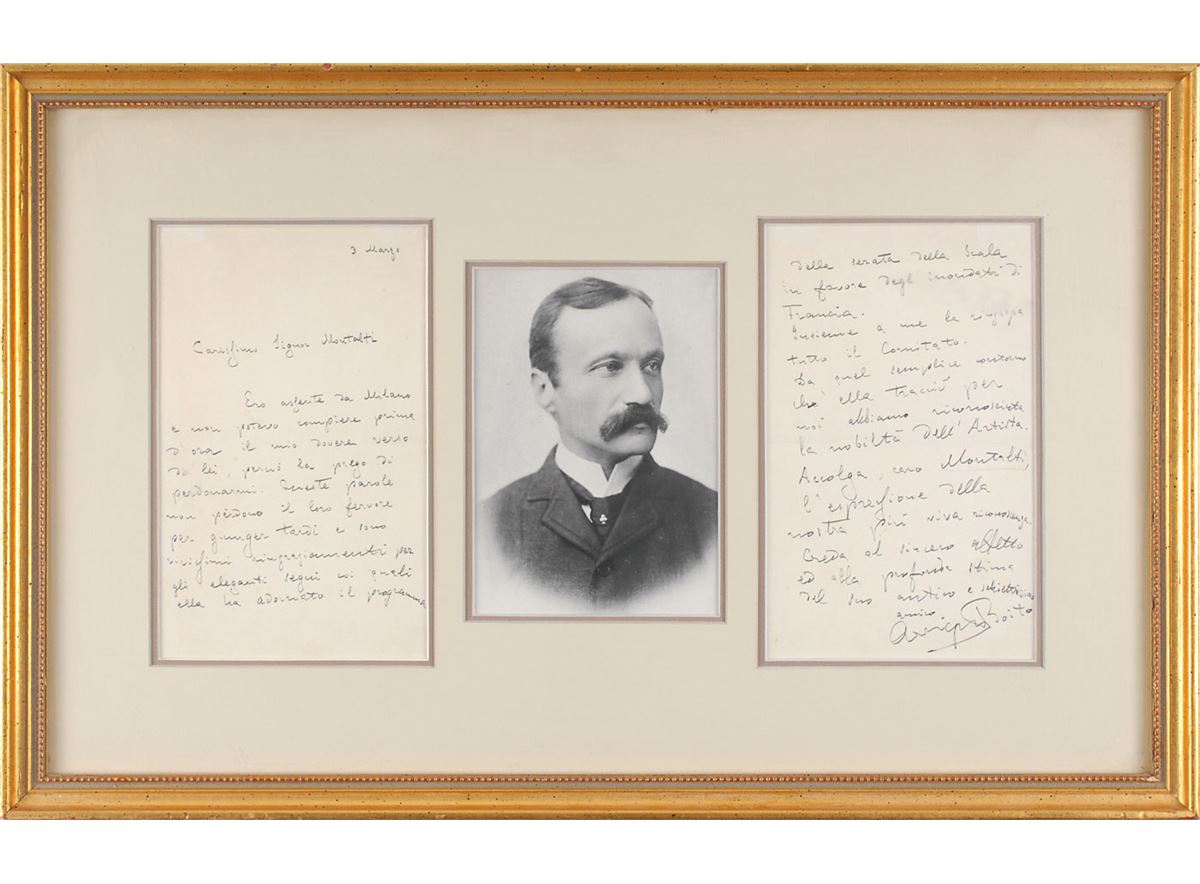 3 Marzo
Carissimo Signor Montalti
Ero assente da Milano
e non potevo compiere prima
d'ora il mio dovere verso
di lei, perciò la prego di
perdonarmi. Queste parole
non perdono il loro fervore
per giunger tardi e sono
vivissimi ringraziamenti per
gli eleganti segni coi quali
ella ha adornato il programma
della serata della Scala
in favore degli inondati di
Francia.
Insieme a me la ringrazia
tutto il Comitato.
Da quel semplice contorno
ch'ella tracciò per
noi abbiamo riconosciuta
la nobiltà dell'Artista.
Accolga, caro Montalti,
l'espressione della
nostra più viva riconoscenza.
Creda al sincero affetto
ed alla profonda stima
del suo antico e
amico
Arrigo Boito